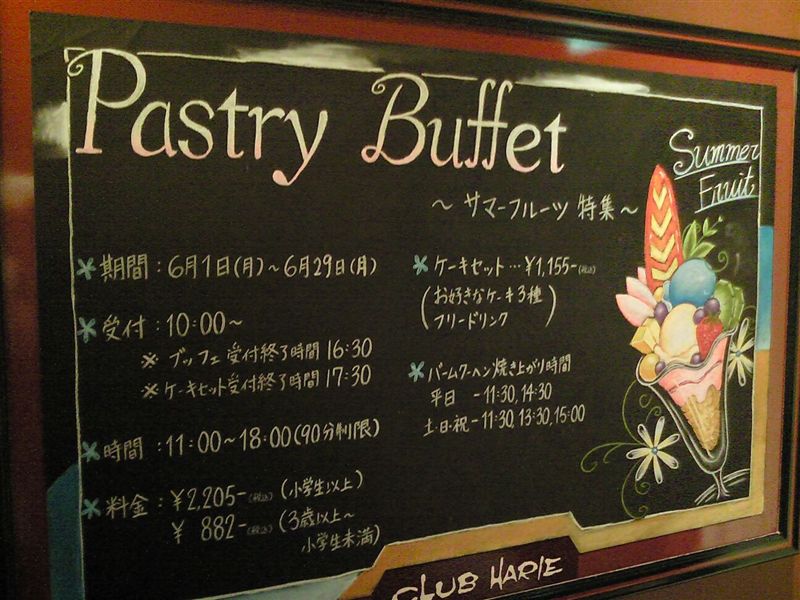 Pastry Buffet
Summer
Fruit
～ サマーフルーツ 特集 ～
* 期間：6月1日(月)～6月29日(月)
* 受付：10:00～
※ ブッフェ 受付終了時間 16:30
※ ケーキセット受付終了時間 17:30
* 時間：11:00～18:00(90分制限)
* 料金：¥2,205-(税込) (小学生以上)
¥ 882-(税込) (3歳以上～
小学生未満)
* ケーキセット…¥1,155-(税込)
(お好きなケーキ3種
フリードリンク)
* バームクーヘン焼き上がり時間
平日 -11:30, 14:30
土・日・祝-11:30, 13:30, 15:00
CLUB HARIE